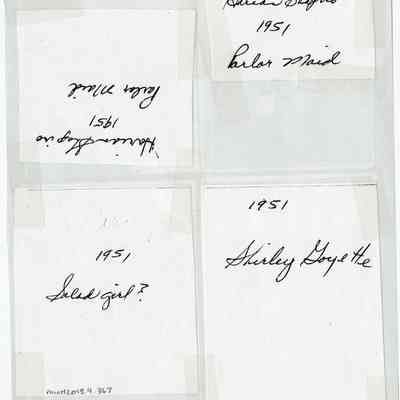 Shapiro
1951
Parlor Maid
Shapiro
1951
Parlor Maid
1951
Salad girl?
1951
Shirley Goyette